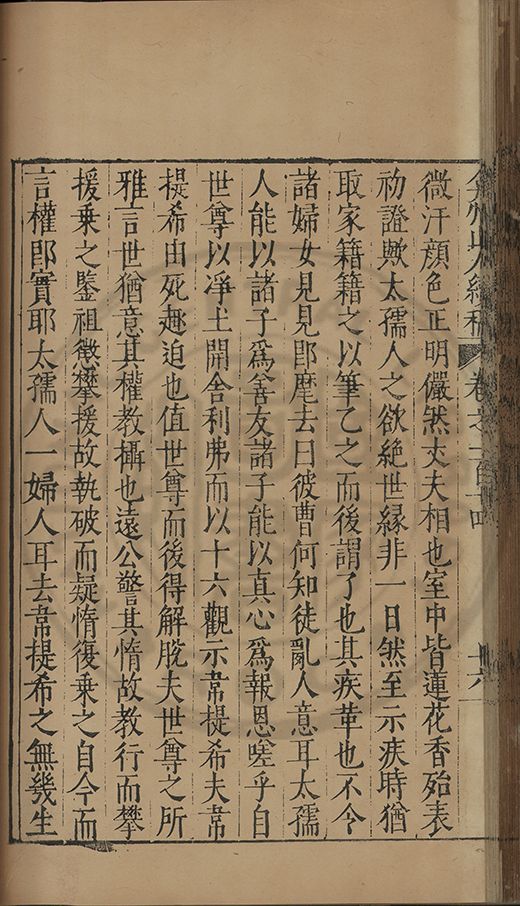 微汗顏色正明儼然丈夫相也室中皆蓮花香殆表
初證歟太孺人之欲絕世緣非一日然至示疾時猶
取家籍籍之以筆乙之而後謂了也其疾革也不令
諸婦女見見卽麾去曰彼曹何知徒亂人意耳太孺
人能以諸子爲善友諸子能以真心爲報恩嗟乎自
世尊以净土開舍利弗而以十六觀示韋提希夫韋
提希由死趣迫也值世尊而後得解脫夫世尊之所
雅言世猶意其權教攝也遠公警其惰故教行而攀
援乗之鑒祖懲攀援故執破而疑惰復乗之自今而
言權卽實耶太孺人一婦人耳去韋提希之無幾生
人續稿 卷之一百十四 十六